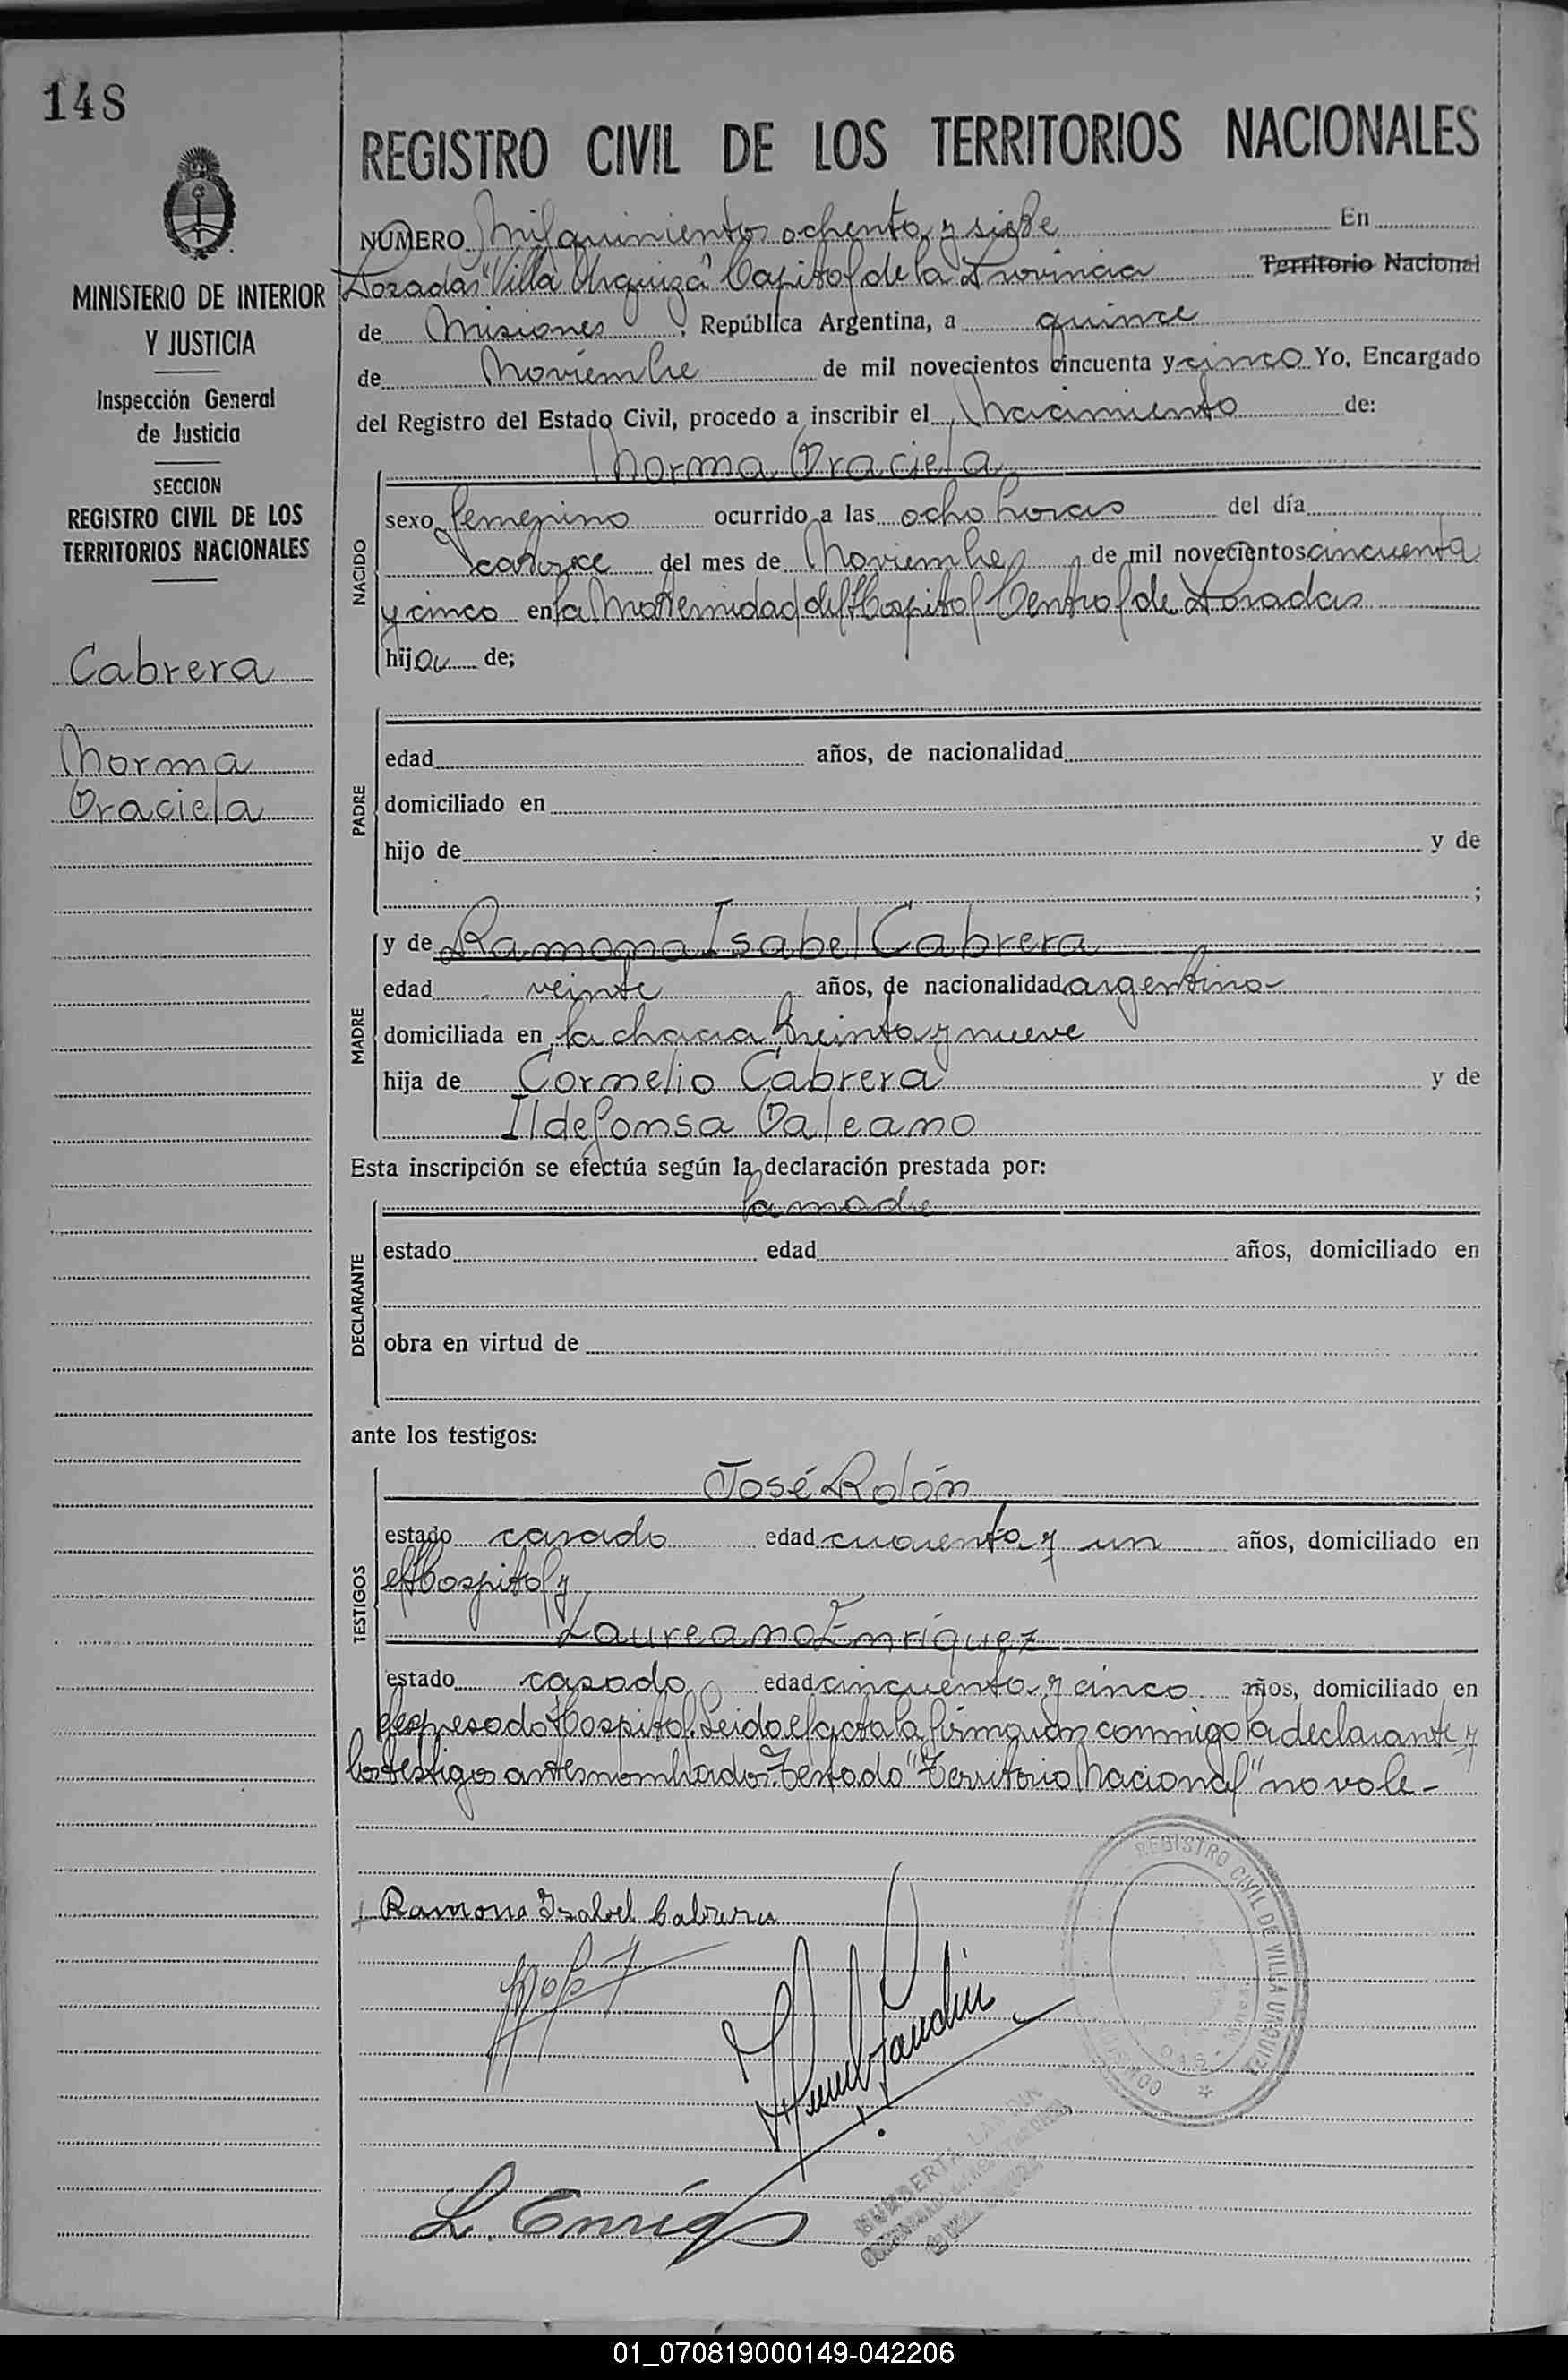 148
REGISTRO CIVIL DE LOS TERRITORIOS NACIONALES
MINISTERIO DE INTERIOR
Y JUSTICIA
Inspección General
de Justicia
SECCION
REGISTRO CIVIL DE LOS
TERRITORIOS NACIONALES
Cabrera
Norma
Graciela
NÚMERO Mil quinientos ochenta y siete En
Posadas "Villa Urquiza" Capital de la Provincia Territorio Nacional
de Misiones, República Argentina, a quince
de Noviembre de mil novecientos cincuenta y cinco Yo, Encargado
del Registro del Estado Civil, procedo a inscribir el Nacimiento de:
Norma Graciela
NACIDO
sexo femenino ocurrido a las ocho horas del día
catorce del mes de Noviembre de mil novecientos cincuenta
y cinco en la Maternidad del Hospital Central de Posadas
hija de;
PADRE
edad años, de nacionalidad
domiciliado en
hijo de y de
;
MADRE
y de Ramona Isabel Cabrera
edad veinte años, de nacionalidad argentina
domiciliada en la chacra treinta y nueve
hija de Cornelio Cabrera y de
Ildefonsa Galeano
Esta inscripción se efectúa según la declaración prestada por:
la madre
DECLARANTE
estado edad años, domiciliado en
obra en virtud de
ante los testigos:
TESTIGOS
José Rolón
estado casado edad cuarenta y un años, domiciliado en
el Hospital y
Laureano Enríquez
estado casado edad cincuenta y cinco años, domiciliado en
el expresado Hospital. Leida el acta la firmaron conmigo la declarante y
los testigos antes nombrados. Testado "Territorio Nacional" no vale-
Ramona Isabel Cabrera
L. Enríq
REGISTRO CIVIL DE VILLA URQUIZA
HUMBERTA LANDIN
01_070819000149-042206